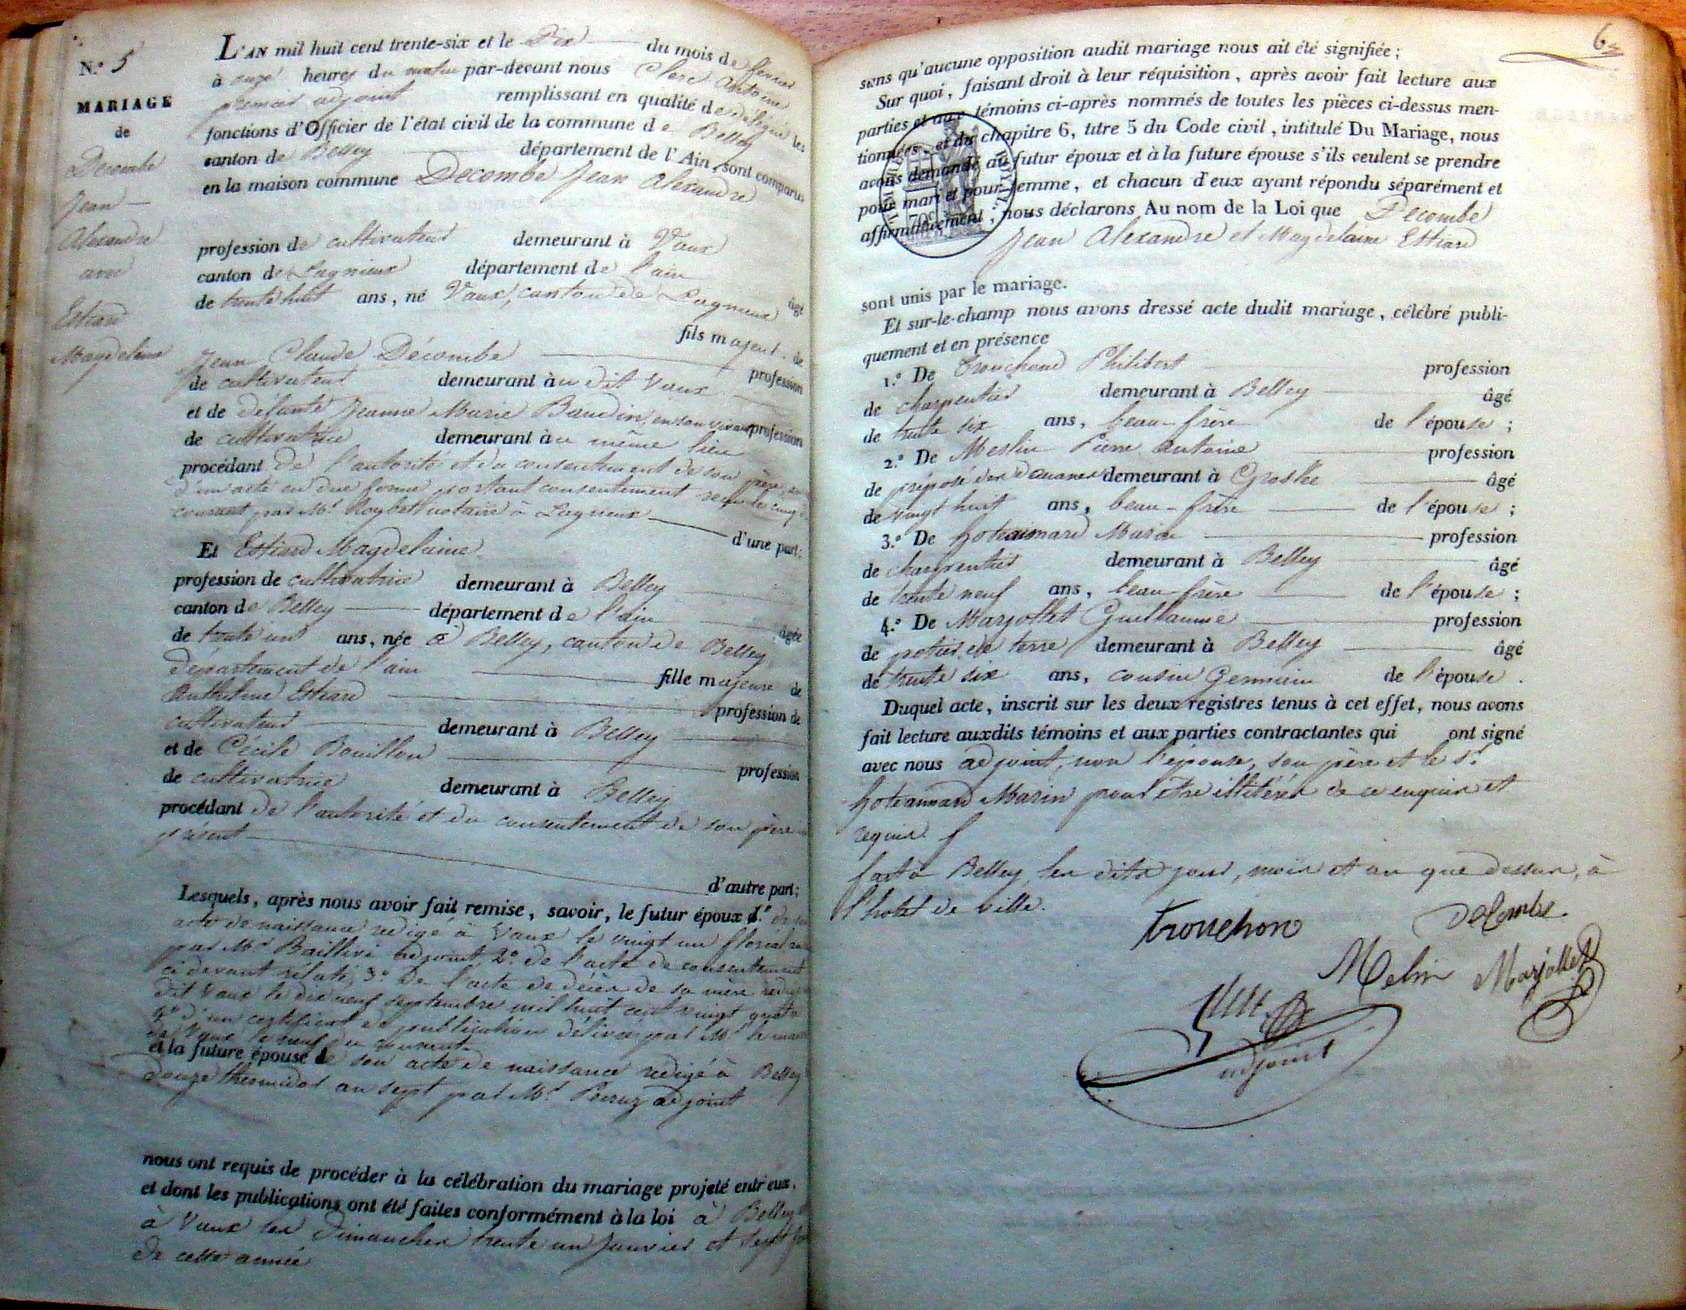 N.º 5
MARIAGE
de
Decombe
Jean
Alexandre
avec
Estiard
Magdelaine
L'AN mil huit cent trente-six et le Dix du mois de février
à onze heures du matin par-devant nous Clerc Antoine
premier adjoint remplissant en qualité de délégué les
fonctions d'Officier de l'état civil de la commune de Belley
canton de Belley département de l'Ain, sont comparus
en la maison commune Decombe Jean Alexandre
profession de cultivateur demeurant à Vaux
canton de Lagnieux département de l'ain
de trente huit ans, né Vaux, canton de Lagnieux âgé
fils majeur de
Jean Claude Décombe profession
de cultivateur demeurant àu dit Vaux
et de défunte Jeanne Marie Baudin, en son vivant profession
de cultivatrice demeurant àu même lieu
procédant de l'autorité et du consentement de son père
d'un acte en due forme portant consentement reçu le cinq
courant par Mr Roybet notaire à Lagnieux
d'une part;
Et Estiard Magdelaine
profession de cultivatrice demeurant à Belley
canton de Belley département de l'ain
de trente un ans, née à Belley, canton de Belley âgée
département de l'ain fille majeure de
Anthelme Estiard profession de
cultivateur demeurant à Belley
et de Cécile Bouillon profession
de cultivatrice demeurant à Belley
procédant de l'autorité et du consentement de son père
présent
d'autre part;
Lesquels, après nous avoir fait remise, savoir, le futur époux 1.º de son
acte de naissance redigé à Vaux le vingt un floréal
par Mr Baillivi adjoint 2.º de l'acte de consentement
ci devant rélaté, 3.º de l'acte de décès de sa mère redigé
dit Vaux le dix neuf septembre mil huit cent vingt quatre
4.º d'un certificat de publication délivré par Mr le maire
de Vaux le neuf du courant
et la future épouse de son acte de naissance redigé à Belley
douze thermidor an sept par Mr Peruz adjoint
nous ont requis de procéder à la célébration du mariage projeté entr'eux,
et dont les publications ont été faites conformément à la loi à Belley
à Vaux les Dimanches trente un Janvier et sept
de cette année
6
sans qu'aucune opposition audit mariage nous ait été signifiée;
Sur quoi, faisant droit à leur réquisition, après avoir fait lecture aux
parties et aux témoins ci-après nommés de toutes les pièces ci-dessus men-
tionnées, et du chapitre 6, titre 5 du Code civil, intitulé Du Mariage, nous
avons demandé au futur époux et à la future épouse s'ils veulent se prendre
pour mari et pour femme, et chacun d'eux ayant répondu séparément et
affirmativement, nous déclarons Au nom de la Loi que Decombe
Jean Alexandre et Magdelaine Estiard
sont unis par le mariage.
Et sur-le-champ nous avons dressé acte dudit mariage, célébré publi-
quement et en présence
1.º De Trouchond Philibert profession
de charpentier demeurant à Belley âgé
de trente six ans, beau-frère de l'épouse;
2.º De Meslin Pierre antoine profession
de préposé des Douanes demeurant à Groslée âgé
de vingt huit ans, beau-frère de l'épouse;
3.º De hoteaimard Marin profession
de charpentier demeurant à Belley âgé
de trente neuf ans, beau-frère de l'épouse;
4.º De Marjollet Guillaume profession
de potier de terre demeurant à Belley âgé
de trente six ans, cousin Germain de l'épouse.
Duquel acte, inscrit sur les deux registres tenus à cet effet, nous avons
fait lecture auxdits témoins et aux parties contractantes qui ont signé
avec nous adjoint, non l'épouse, son père et le sr
hoteaimard Marin pour être illitérés de ce enquis et
requis
fait à Belley, les dits jour, mois et an que dessus, à
l'hotel de ville.
Trouchon Decombe
Melin Marjollet
adjoint